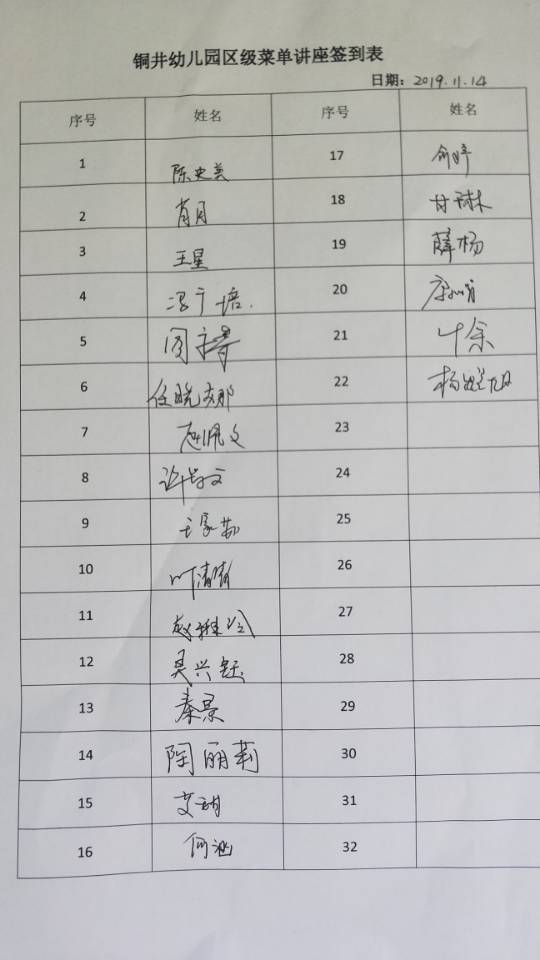 铜井幼儿园区级菜单讲座签到表
日期：2019.11.14
序号 姓名 序号 姓名
1 陈史美 17 俞婷
2 肖月 18 甘琳
3 王星 19 薛杨
4 冯宁培. 20 康
5 周 21 叶余
6 任晓 娜 22 杨 旭
7 赵佩文 23
8 许 文 24
9 王家茹 25
10 叶清清 26
11 赵雅 27
12 吴兴钰 28
13 秦景 29
14 陶丽莉 30
15 艾 31
16 何 32